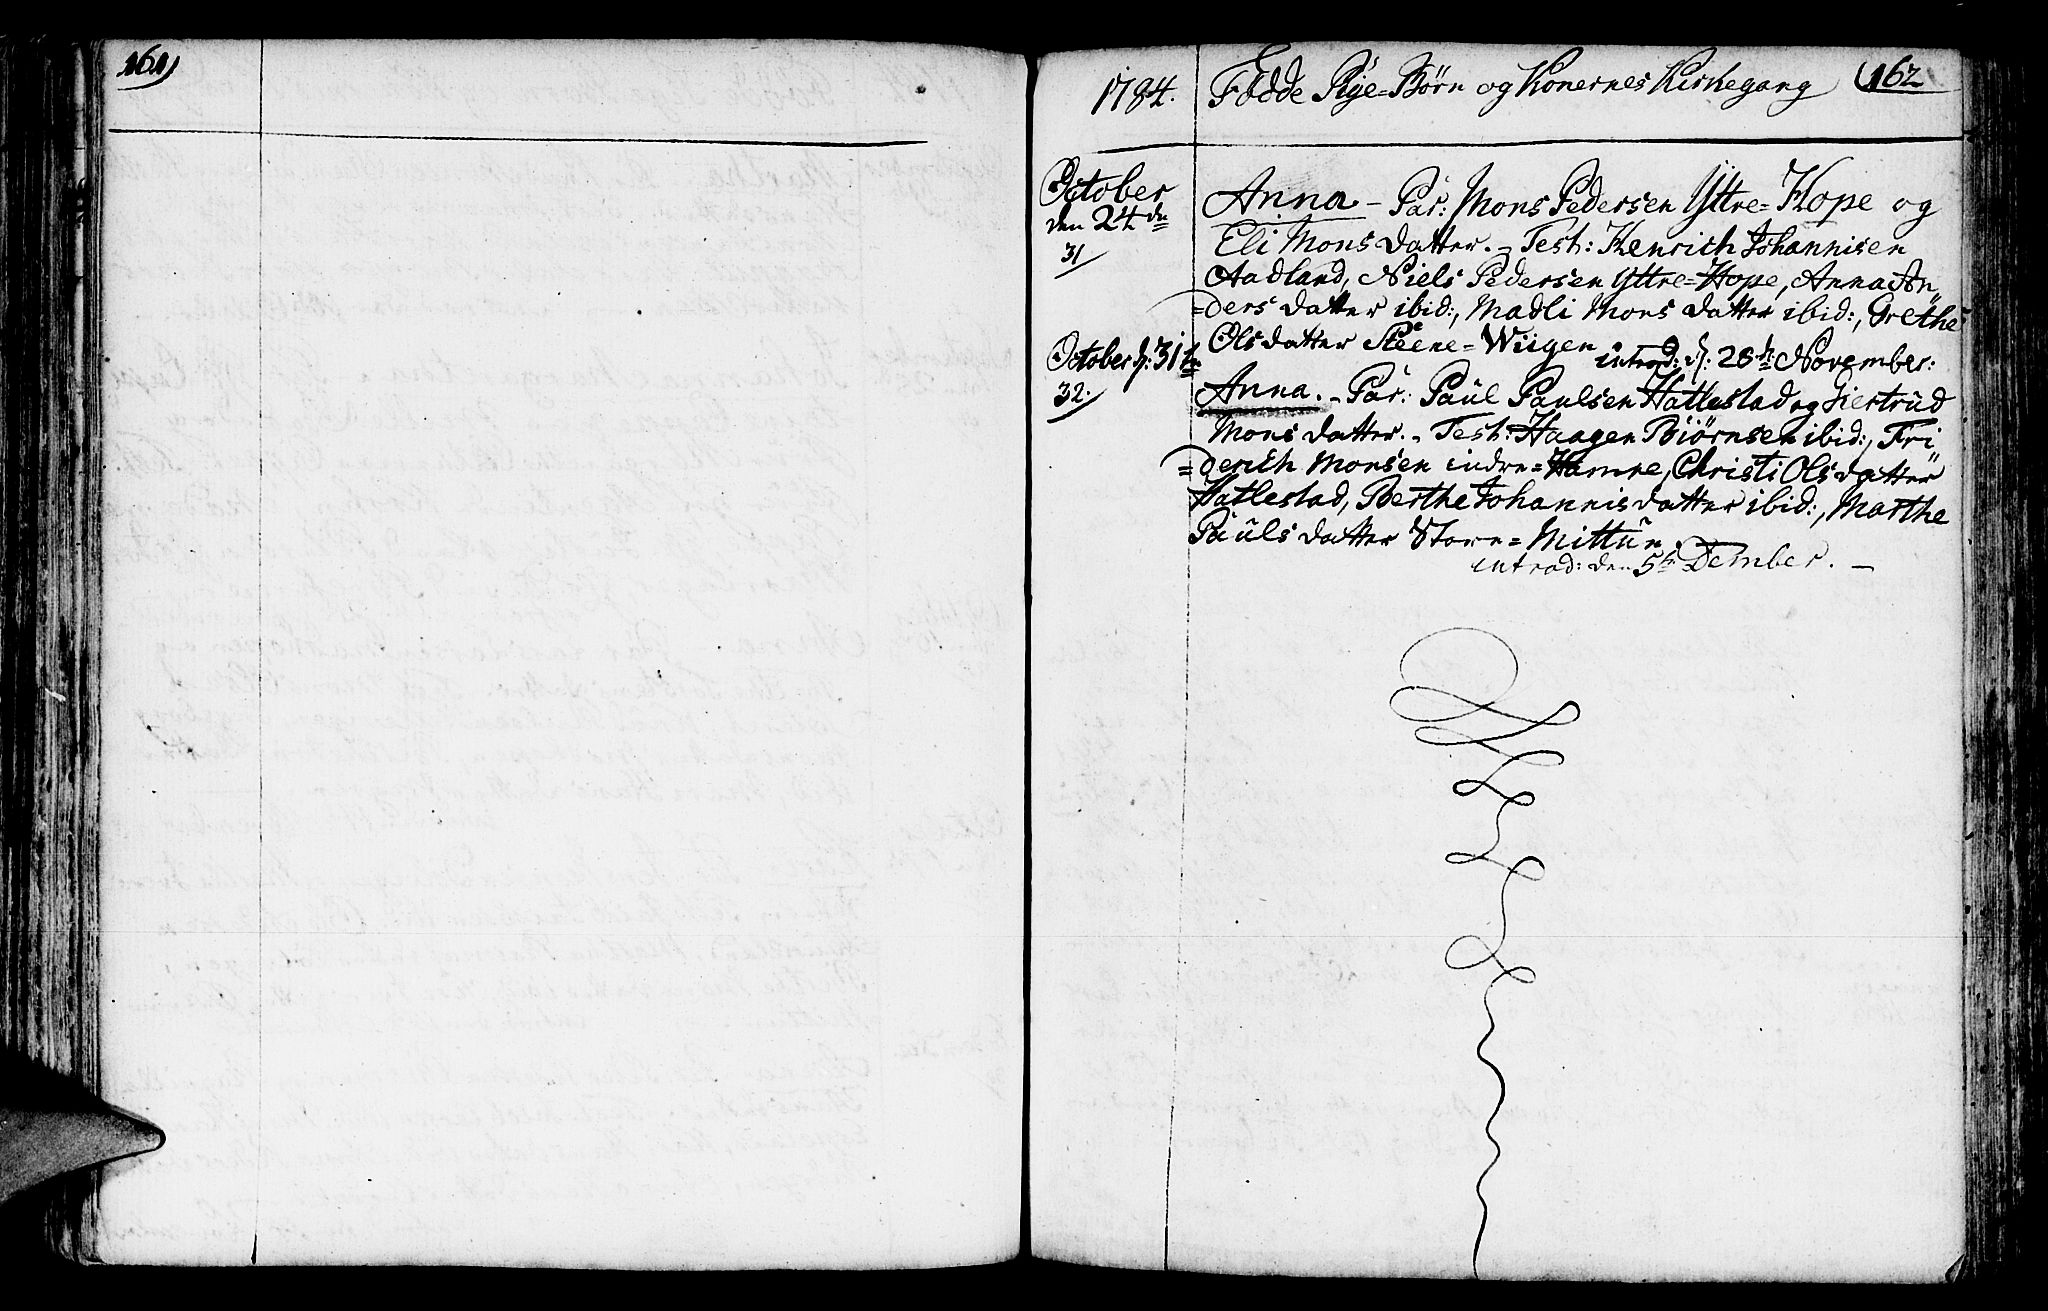 161)
1784. Fødde Pige=Børn og Konernes Kirkegang (162
October
den 24de
31/
Anna – Par: Mons Pedersen Yttre=Hope og
Eli Monsdatter. – Test: Henrich Johannisen
Aadland, Niels Pedersen Yttre=Hope, Anna An
=dersdatter ibid:, Madli Monsdatter ibid:, Grethe
Olsdatter Steene=Wiigen introd: d: 28de November:
October d: 31te
32./
Anna. – Par: Paul Paulsen Hatlestad og Giertrud
Monsdatter. – Test: Haagen Biørnsen ibid:, Fri
=derich Monsen indre=Hamre, Christi Olsdatter
Hatlestad, Berthe Johannisdatter ibid:, Marthe
Paulsdatter Store=Mittun.
introd: den 5te Dember. –